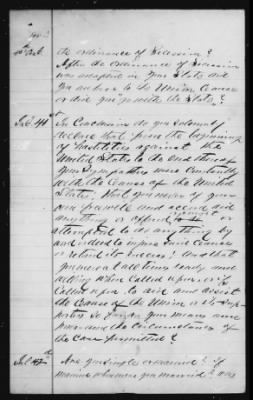 the ordinance of Secession?
After the ordinance of Secession
was adopted in your State did
you adhere to the Union Cause
or did you go with the State?
Int. 41st In Conclusion do you solemnly
declare that from the beginning
of hostilities against the
United States to the end thereof
your sympathies were constantly
with the Cause of the United
States; that you never of your
own free will and accord did
anything or offered or
attempted to do anything by
word or deed to injure said Cause
or retard its success? And that
you were at all times ready and
willing when called upon or if
called upon to aid and assist
the Cause of the Union or its Supporters
so far as your means and
power and the circumstances of
the case permitted?
Are you single or married? if
married when were you married?